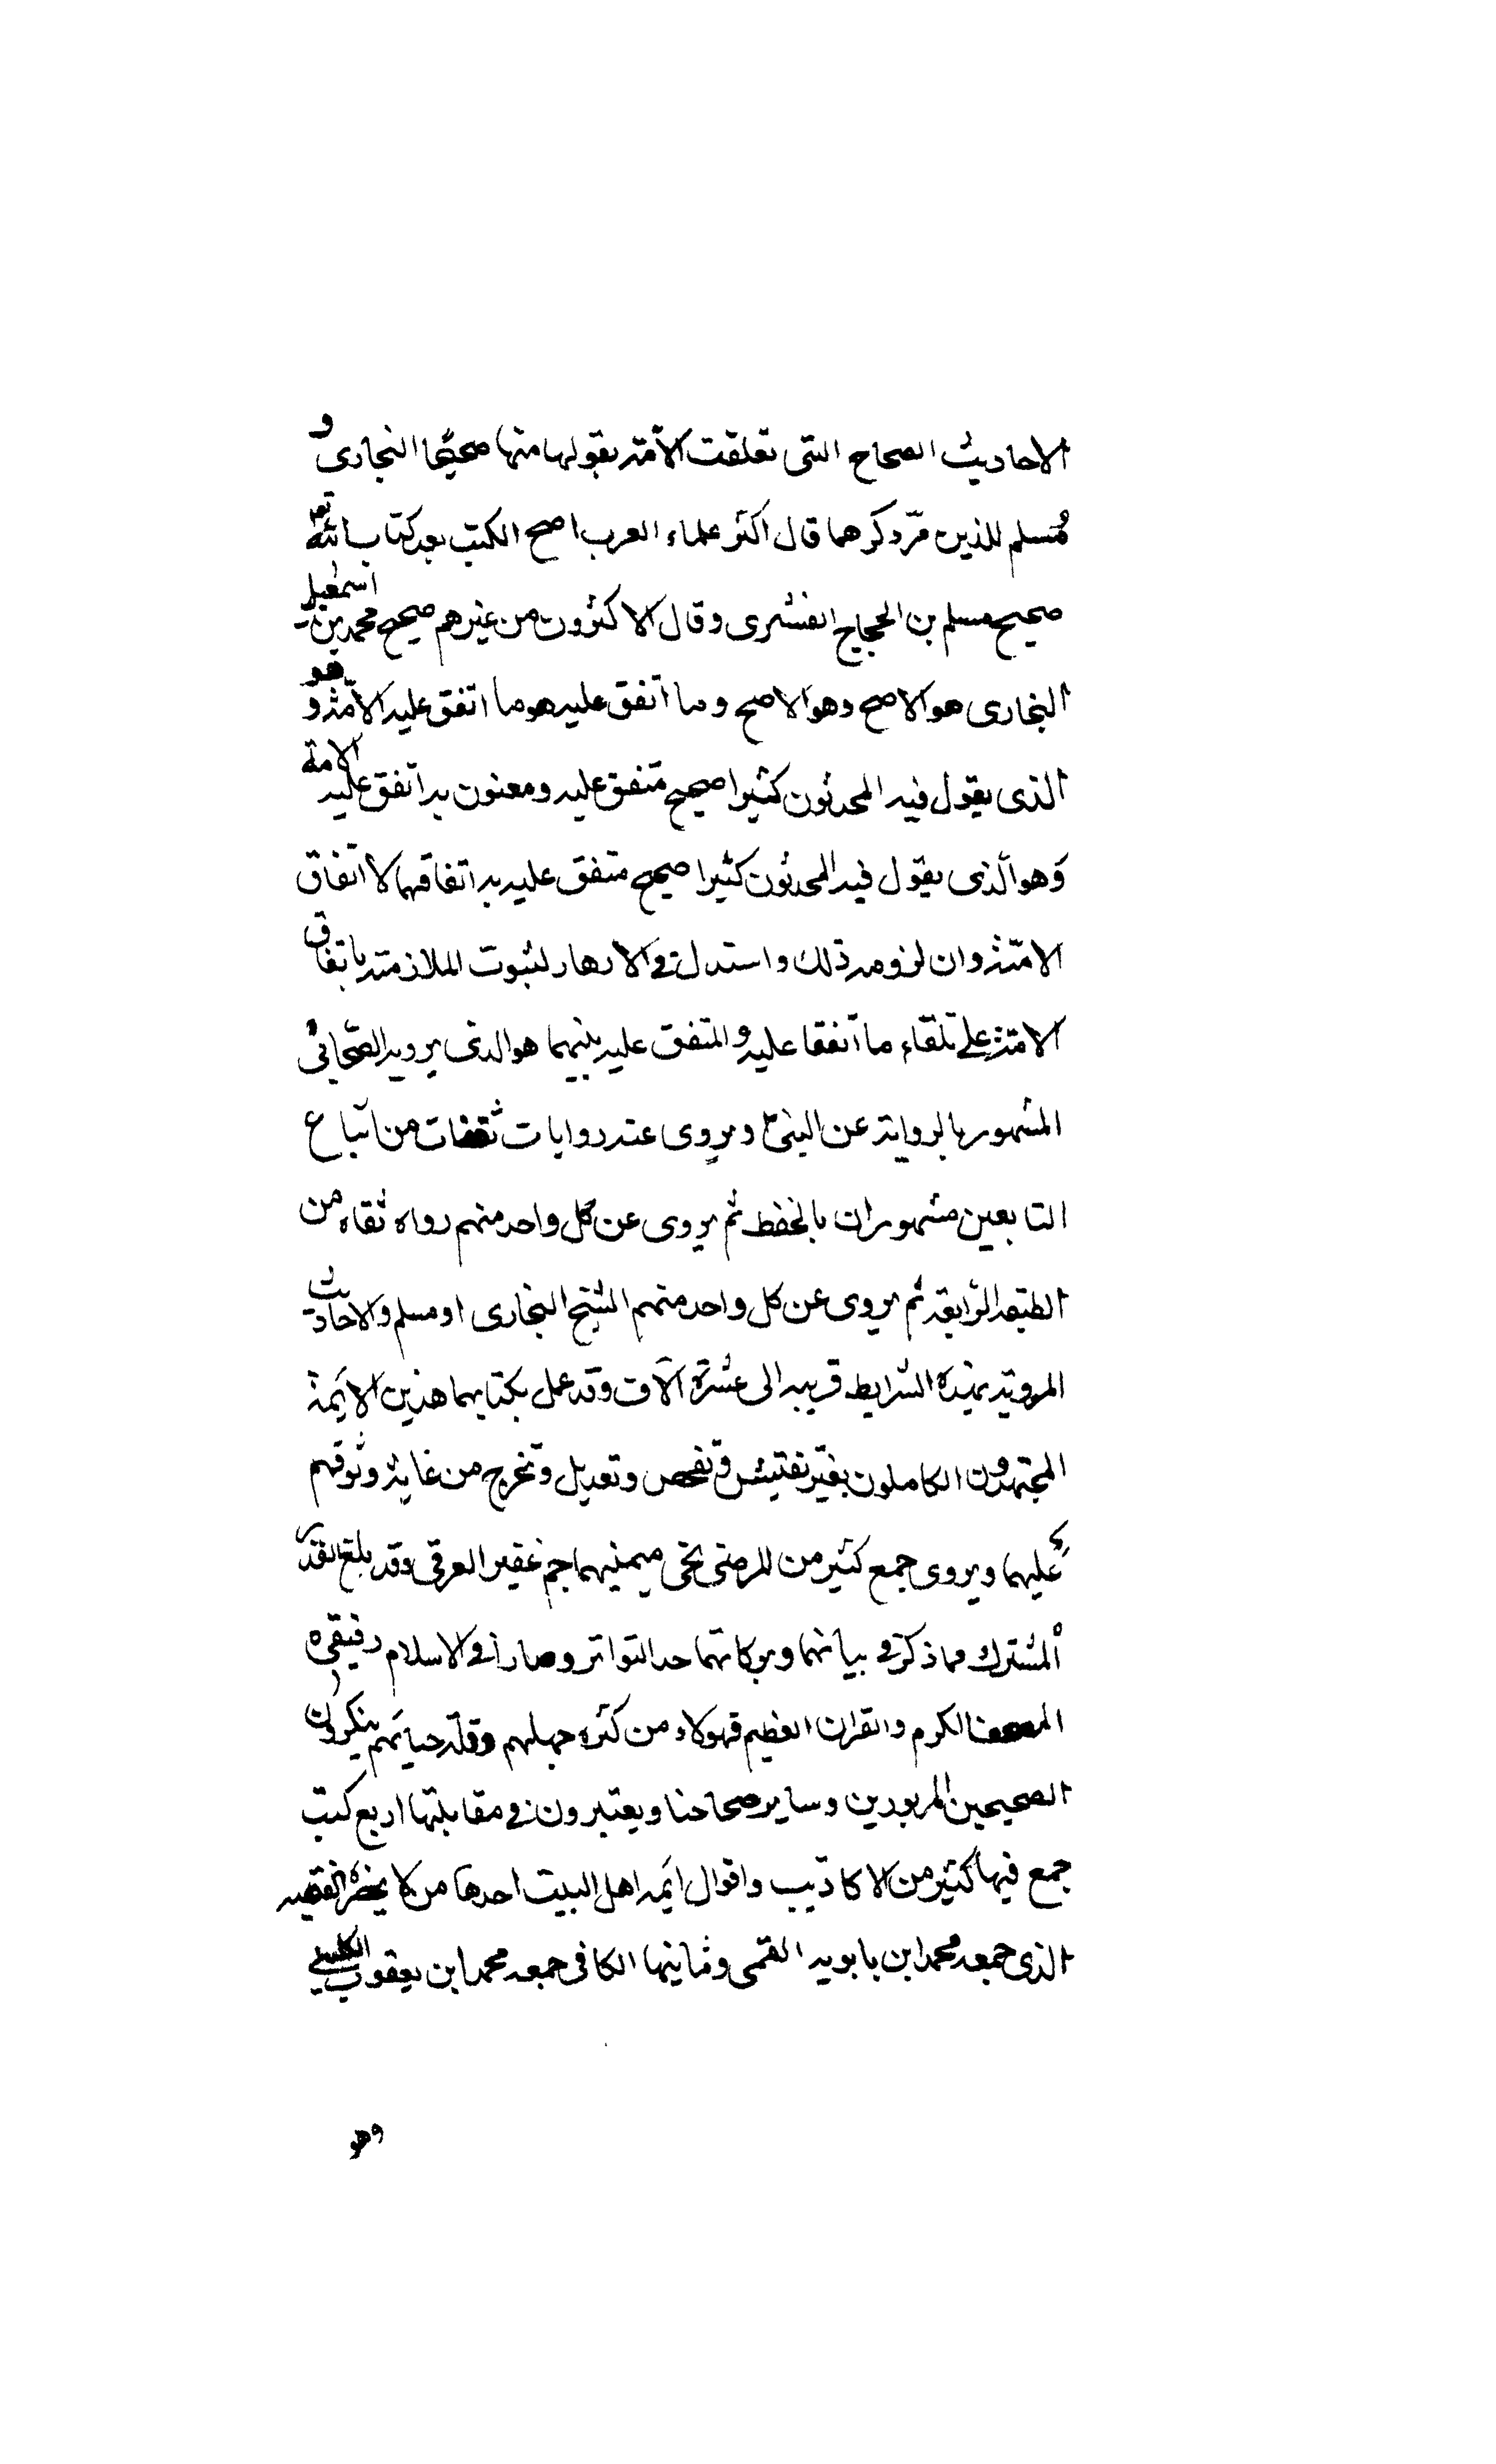 الاحاديث الصحاح التى تعلقت الامة بقبولها منها صحيحا البخارى و
مسلم للذين مرّ ذكرهما قال اكثر علماء العرب اصح الكتب بعد كتاب الله تعم
صحيح مسلم بن الحجاج القشرى وقال الاكثرون من غيرهم صحيح محمد بن اسمعيل
البخارى هو الاصح وهو الاصح وما اتفق عليه هو ما اتفق عليه الامة وهو
الذى يقول فيه المحدثون كثيرا صحيح متفق عليه ومعنون به اتفق عليه الامة
وهو الذى يقول فيه المحدثون كثيرا صحيح متفق عليه به اتفاقهما لا اتفاق
الامّة وان لزومه ذلك واستدل فى الازهار لثبوت الملازمة باتفاق
الامة على تلقاء ما اتفقا عليه والمتفق عليه بينهما هو الذى يرويه الصّحابى
المشهور بالرواية عن النبى ص ويروى عنه روايات ثقات من اتباع
التابعين مشهوران بالحفظ ثم يروى عن كل واحد منهم رواه ثقاه من
الطبقه الرّابقه ثم يروى عن كل واحد منهم الشيخ البخارى او مسلم والاحاديث
المرويّه بهذه الشرايط قريبه الى عشرة آلاف وقد عمل بكتابهما هذين الايمة
المجتهدون الكاملون بغير تفتيش وتفحص وتعديل وتخرج من غاية وثوقهم
عليهما ويروى جمع كثير من المرضى جم غفير الغرقى وقد بلغ القدر
المشترك مما ذكر فى بيانهما وبركاتهما حد التواتر وصارا فى الاسلام رفيقى
المصحف الكرم والقران العظيم فهولاء من كثره جهلهم وقلة حيائهم ينكرون
الصحيحين المزبورين وساير صحاحنا ويعتبرون فى مقابلتها اربع كتب
جمع فيها كثير من الاكاذيب واقوال ايمه اهل البيت احدها من لا يحضره الفقيه
الذى جمعه محمد ابن بابويه القمى وثانيها الكافى جمعه محمد ابن يعقوب الكلينى
وهو